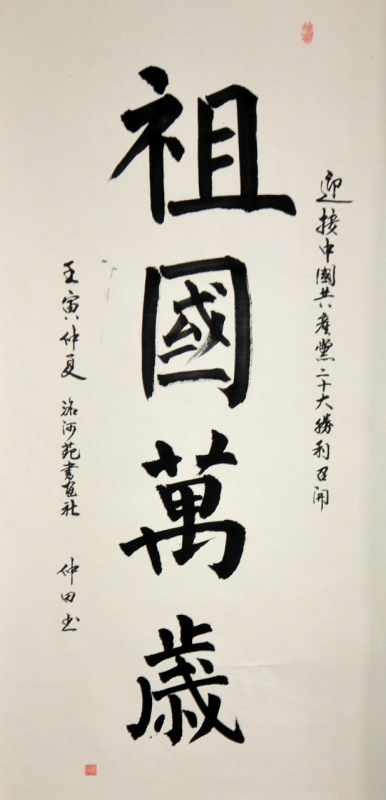 迎接中國共產黨二十大勝利召開
祖國萬歲
壬寅仲夏 洛河苑書画社 仲田书